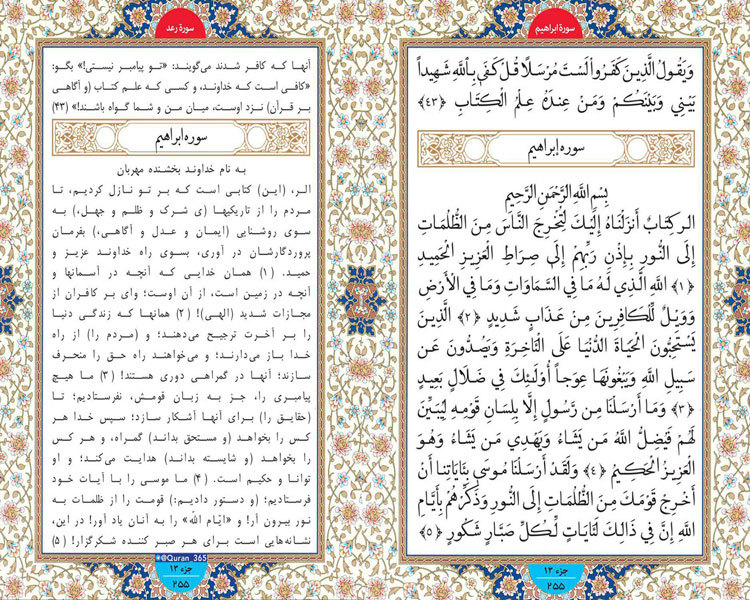 سورهٔ ابراهیم
وَيَقُولُ الَّذِينَ كَفَرُوا لَسْتَ مُرْسَلًا قُلْ كَفَىٰ بِاللَّهِ شَهِيداً
بَيْنِي وَبَيْنَكُمْ وَمَنْ عِندَهُ عِلْمُ الْكِتَابِ ﴿۴۳﴾
سوره إبراهيم
بِسْمِ اللَّهِ الرَّحْمَنِ الرَّحِيمِ
الر كِتَابٌ أَنزَلْنَاهُ إِلَيْكَ لِتُخْرِجَ النَّاسَ مِنَ الظُّلُمَاتِ
إِلَى النُّورِ بِإِذْنِ رَبِّهِمْ إِلَىٰ صِرَاطِ الْعَزِيزِ الْحَمِيدِ
﴿۱﴾ اللَّهِ الَّذِي لَهُ مَا فِي السَّمَاوَاتِ وَمَا فِي الْأَرْضِ
وَوَيْلٌ لِّلْكَافِرِينَ مِنْ عَذَابٍ شَدِيدٍ ﴿۲﴾ الَّذِينَ
يَسْتَحِبُّونَ الْحَيَاةَ الدُّنْيَا عَلَى الْآخِرَةِ وَيَصُدُّونَ عَن
سَبِيلِ اللَّهِ وَيَبْغُونَهَا عِوَجاً أُولَٰئِكَ فِي ضَلَالٍ بَعِيدٍ
﴿۳﴾ وَمَا أَرْسَلْنَا مِن رَّسُولٍ إِلَّا بِلِسَانِ قَوْمِهِ لِيُبَيِّنَ
لَهُمْ فَيُضِلُّ اللَّهُ مَن يَشَاءُ وَيَهْدِي مَن يَشَاءُ وَهُوَ
الْعَزِيزُ الْحَكِيمُ ﴿۴﴾ وَلَقَدْ أَرْسَلْنَا مُوسَىٰ بِئَايَاتِنَا أَنْ
أَخْرِجْ قَوْمَكَ مِنَ الظُّلُمَاتِ إِلَى النُّورِ وَذَكِّرْهُم بِأَيَّامِ
اللَّهِ إِنَّ فِي ذَٰلِكَ لَآيَاتٍ لِّكُلِّ صَبَّارٍ شَكُورٍ ﴿۵﴾
جزء ۱۳
۲۵۵
سورهٔ رعد
آنها که کافر شدند می‌گویند: «تو پیامبر نیستی!» بگو:
«کافی است که خداوند، و کسی که علم کتاب (و آگاهی
بر قرآن) نزد اوست، میان من و شما گواه باشند!» (۴۳)
سوره ابراهیم
به نام خداوند بخشنده مهربان
الر، (این) کتابی است که بر تو نازل کردیم، تا
مردم را از تاریکیها (ی شرک و ظلم و جهل،) به
سوی روشنایی (ایمان و عدل و آگاهی،) بفرمان
پروردگارشان در آوری، بسوی راه خداوند عزیز و
حمید. (۱) همان خدایی که آنچه در آسمانها و
آنچه در زمین است، از آن اوست؛ وای بر کافران از
مجازات شدید (الهی)! (۲) همانها که زندگی دنیا
را بر آخرت ترجیح می‌دهند؛ و (مردم را) از راه
خدا باز می‌دارند؛ و می‌خواهند راه حق را منحرف
سازند؛ آنها در گمراهی دوری هستند! (۳) ما هیچ
پیامبری را، جز به زبان قومش، نفرستادیم؛ تا
(حقایق را) برای آنها آشکار سازد؛ سپس خدا هر
کس را بخواهد (و مستحق بداند) گمراه، و هر کس
را بخواهد (و شایسته بداند) هدایت می‌کند؛ و او
توانا و حکیم است. (۴) ما موسی را با آیات خود
فرستادیم؛ (و دستور دادیم:) قومت را از ظلمات به
نور بیرون آر! و «ایّام الله» را به آنان یاد آور! در این،
نشانه‌هایی است برای هر صبر کننده شکرگزار! (۵)
@Quran_365
جزء ۱۳
۲۵۵